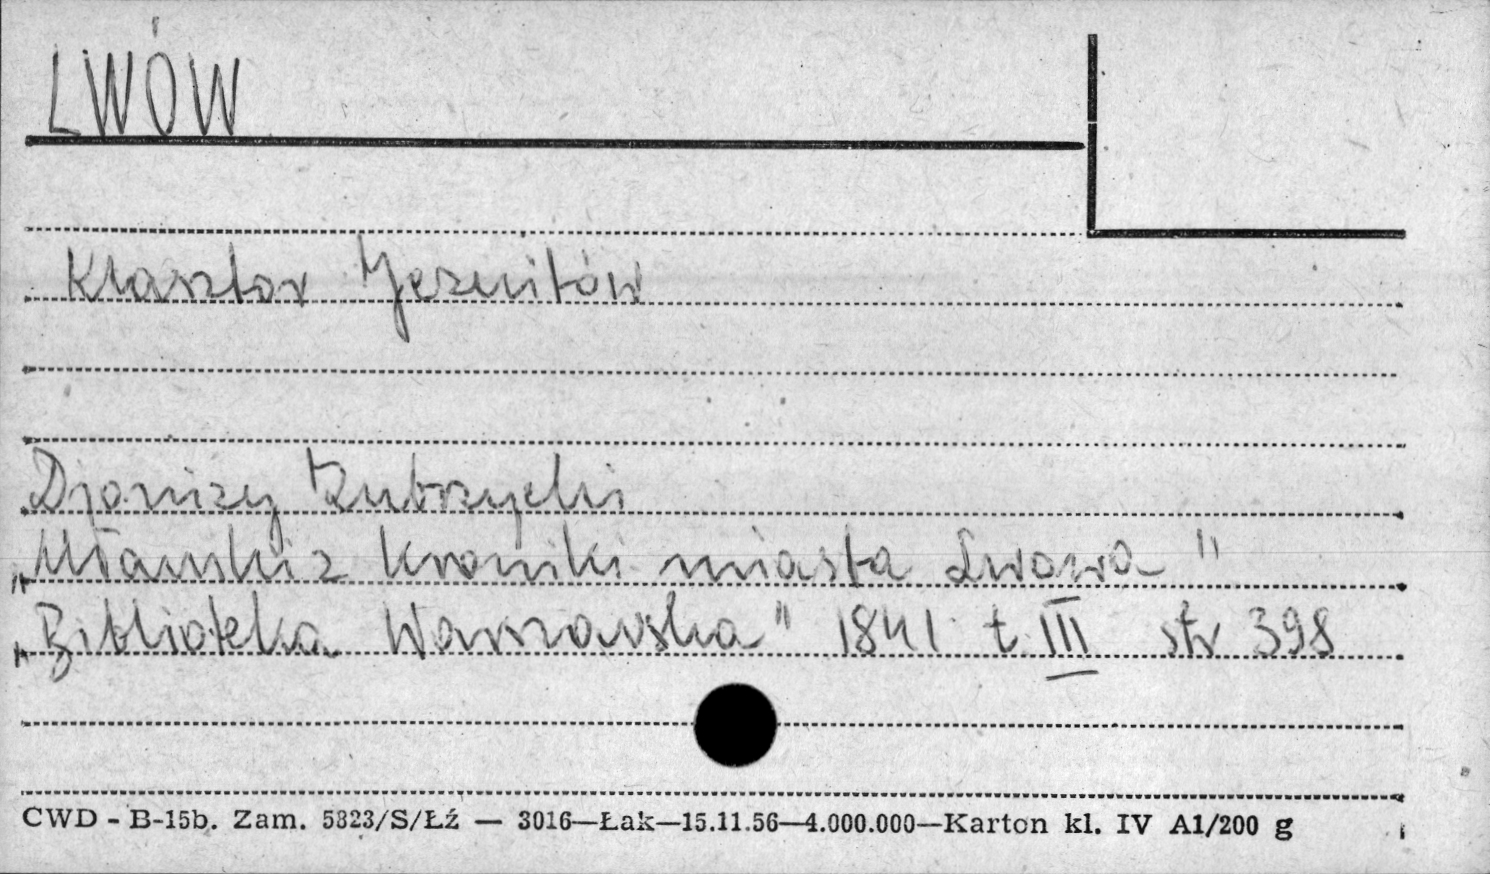 LWÓW
Klasztor Jezuitów
Djonizy Zubrzycki
„Ułamki z kroniki miasta Lwowa"
„Biblioteka Warszawska" 1841 t. III str 398
CWD - B-15b. Zam. 5823/S/Łź — 3016—Łak—15.11.56—4.000.000—Karton kl. IV A1/200 g